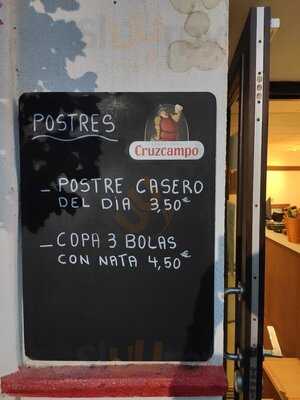 POSTRES
Cruzcampo
_ POSTRE CASERO
DEL DIA 3,50€
_ COPA 3 BOLAS
CON NATA 4,50€